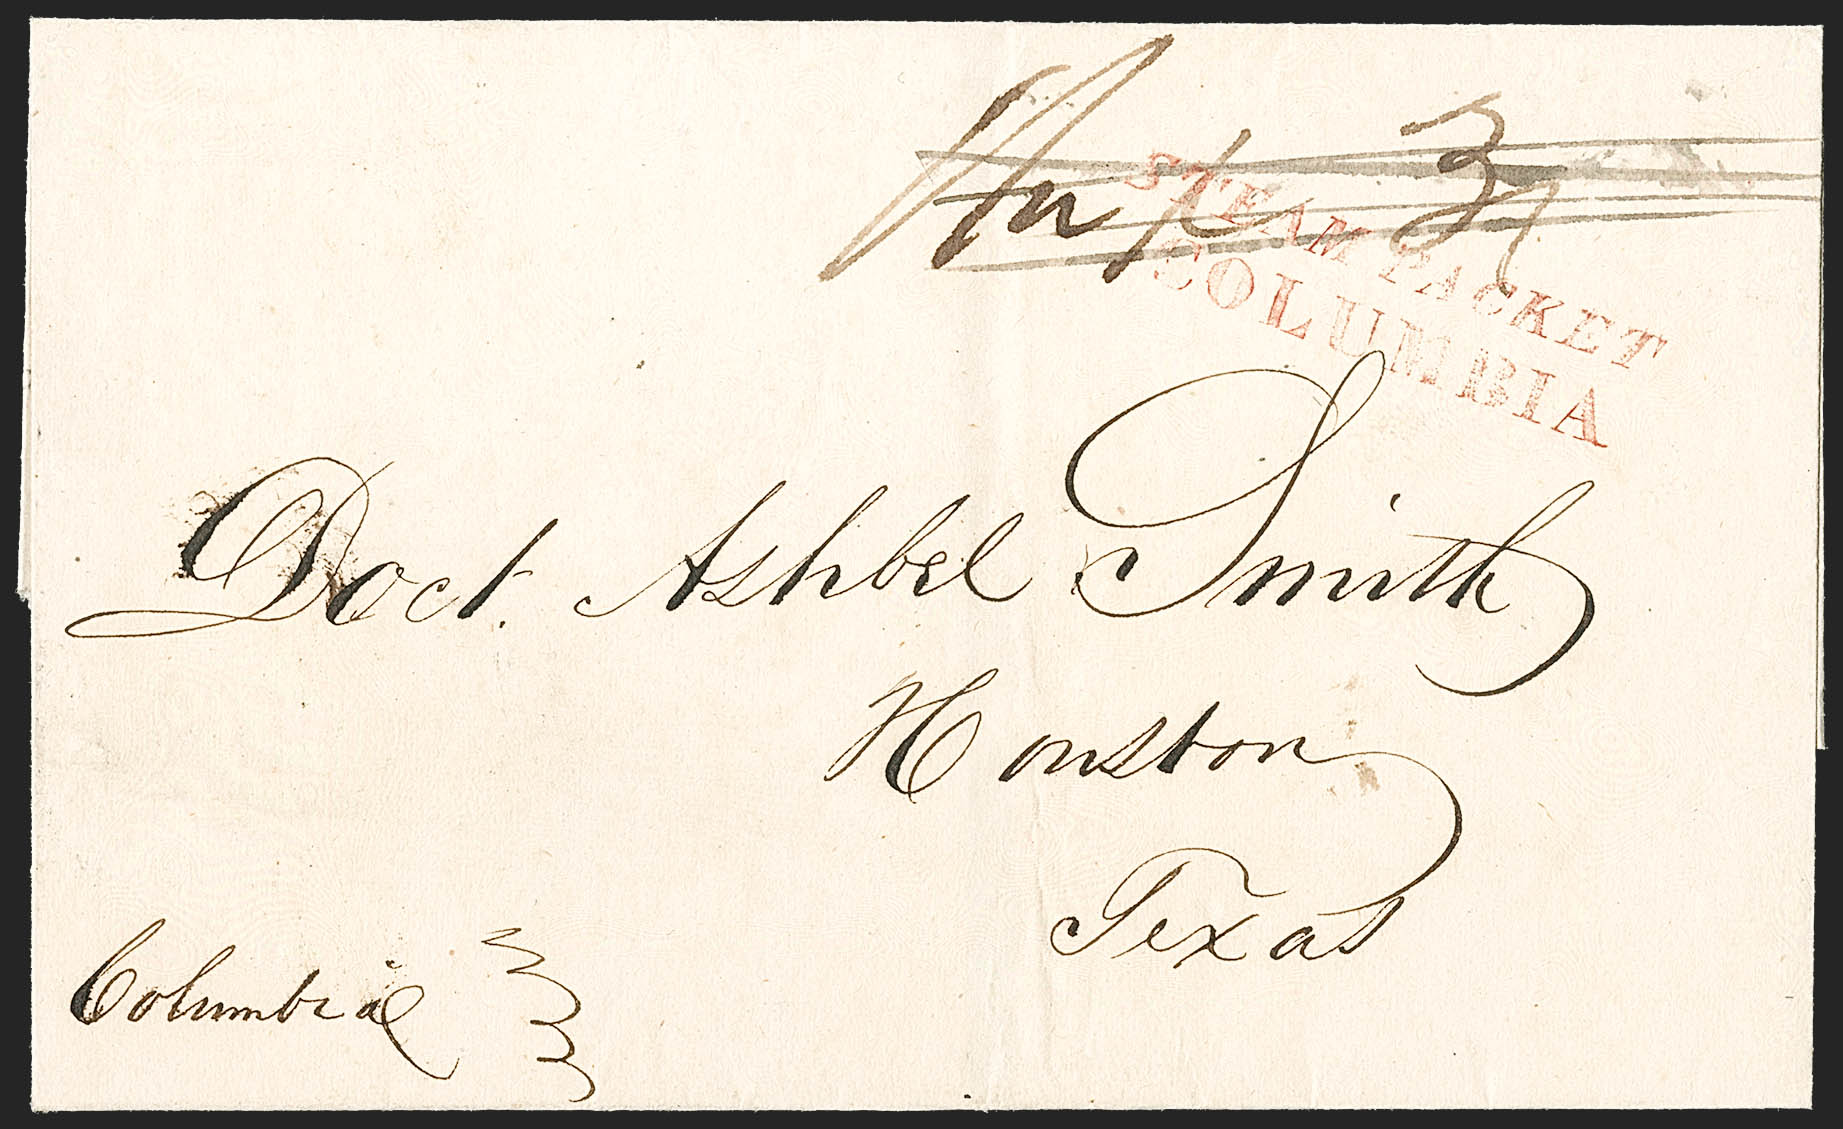 STEAM PACKET
COLUMBIA
Doct. Ashbel Smith
Houston
Texas
Columbia